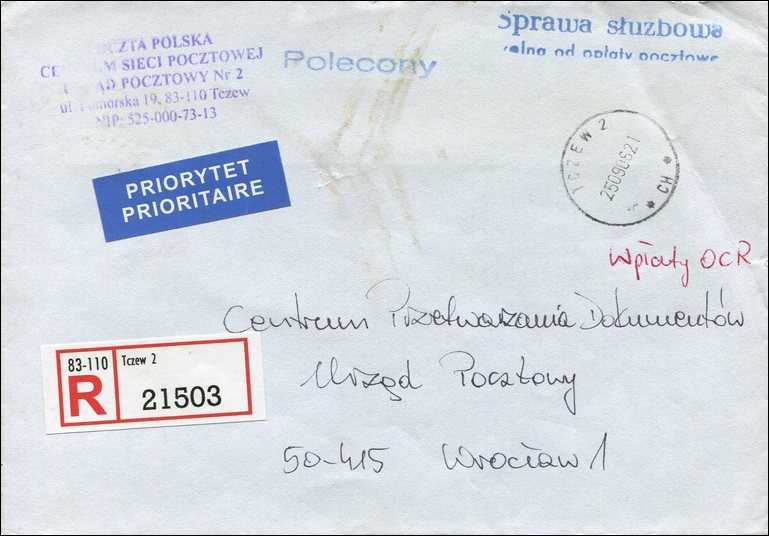 POCZTA POLSKA
CENTRUM SIECI POCZTOWEJ
URZĄD POCZTOWY Nr 2
ul. Pomorska 19, 83-110 Tczew
NIP: 525-000-73-13
Polecony
Sprawa służbowa
wolna od opłaty pocztowe
PRIORYTET
PRIORITAIRE
TCZEW 2
25090621
* CH *
Wpłaty OCR
Centrum Przetwarzania Dokumentów
Urząd Pocztowy
50-415 Wrocław 1
83-110 Tczew 2
R 21503